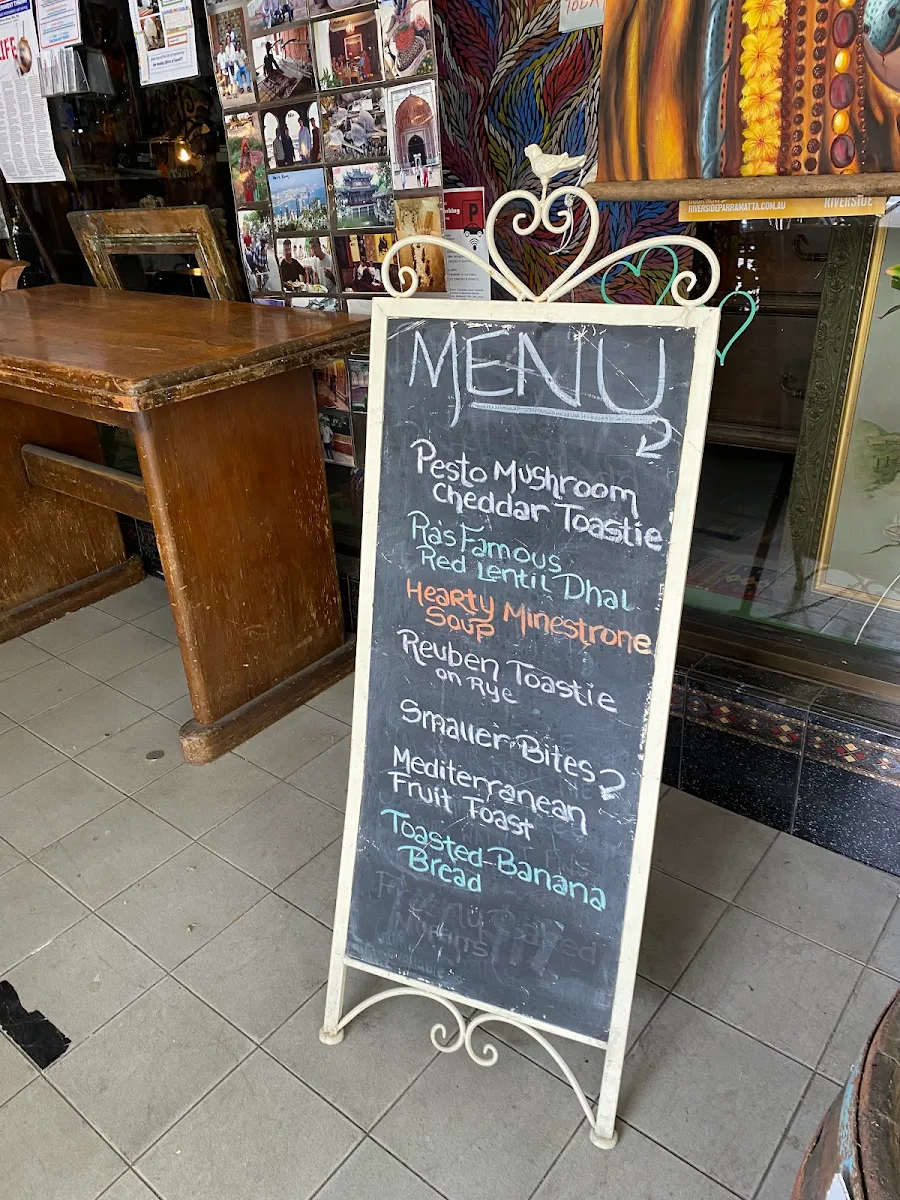 LIFE
TODAY
RIVERSIDEPARRAMATTA.COM.AU
RIVERSIDE
MENU
Pesto Mushroom
Cheddar Toastie
Ra's Famous
Red Lentil Dhal
Hearty Minestrone
Soup
Reuben Toastie
on Rye
Smaller Bites
Mediterranean
Fruit Toast
Toasted Banana
Bread